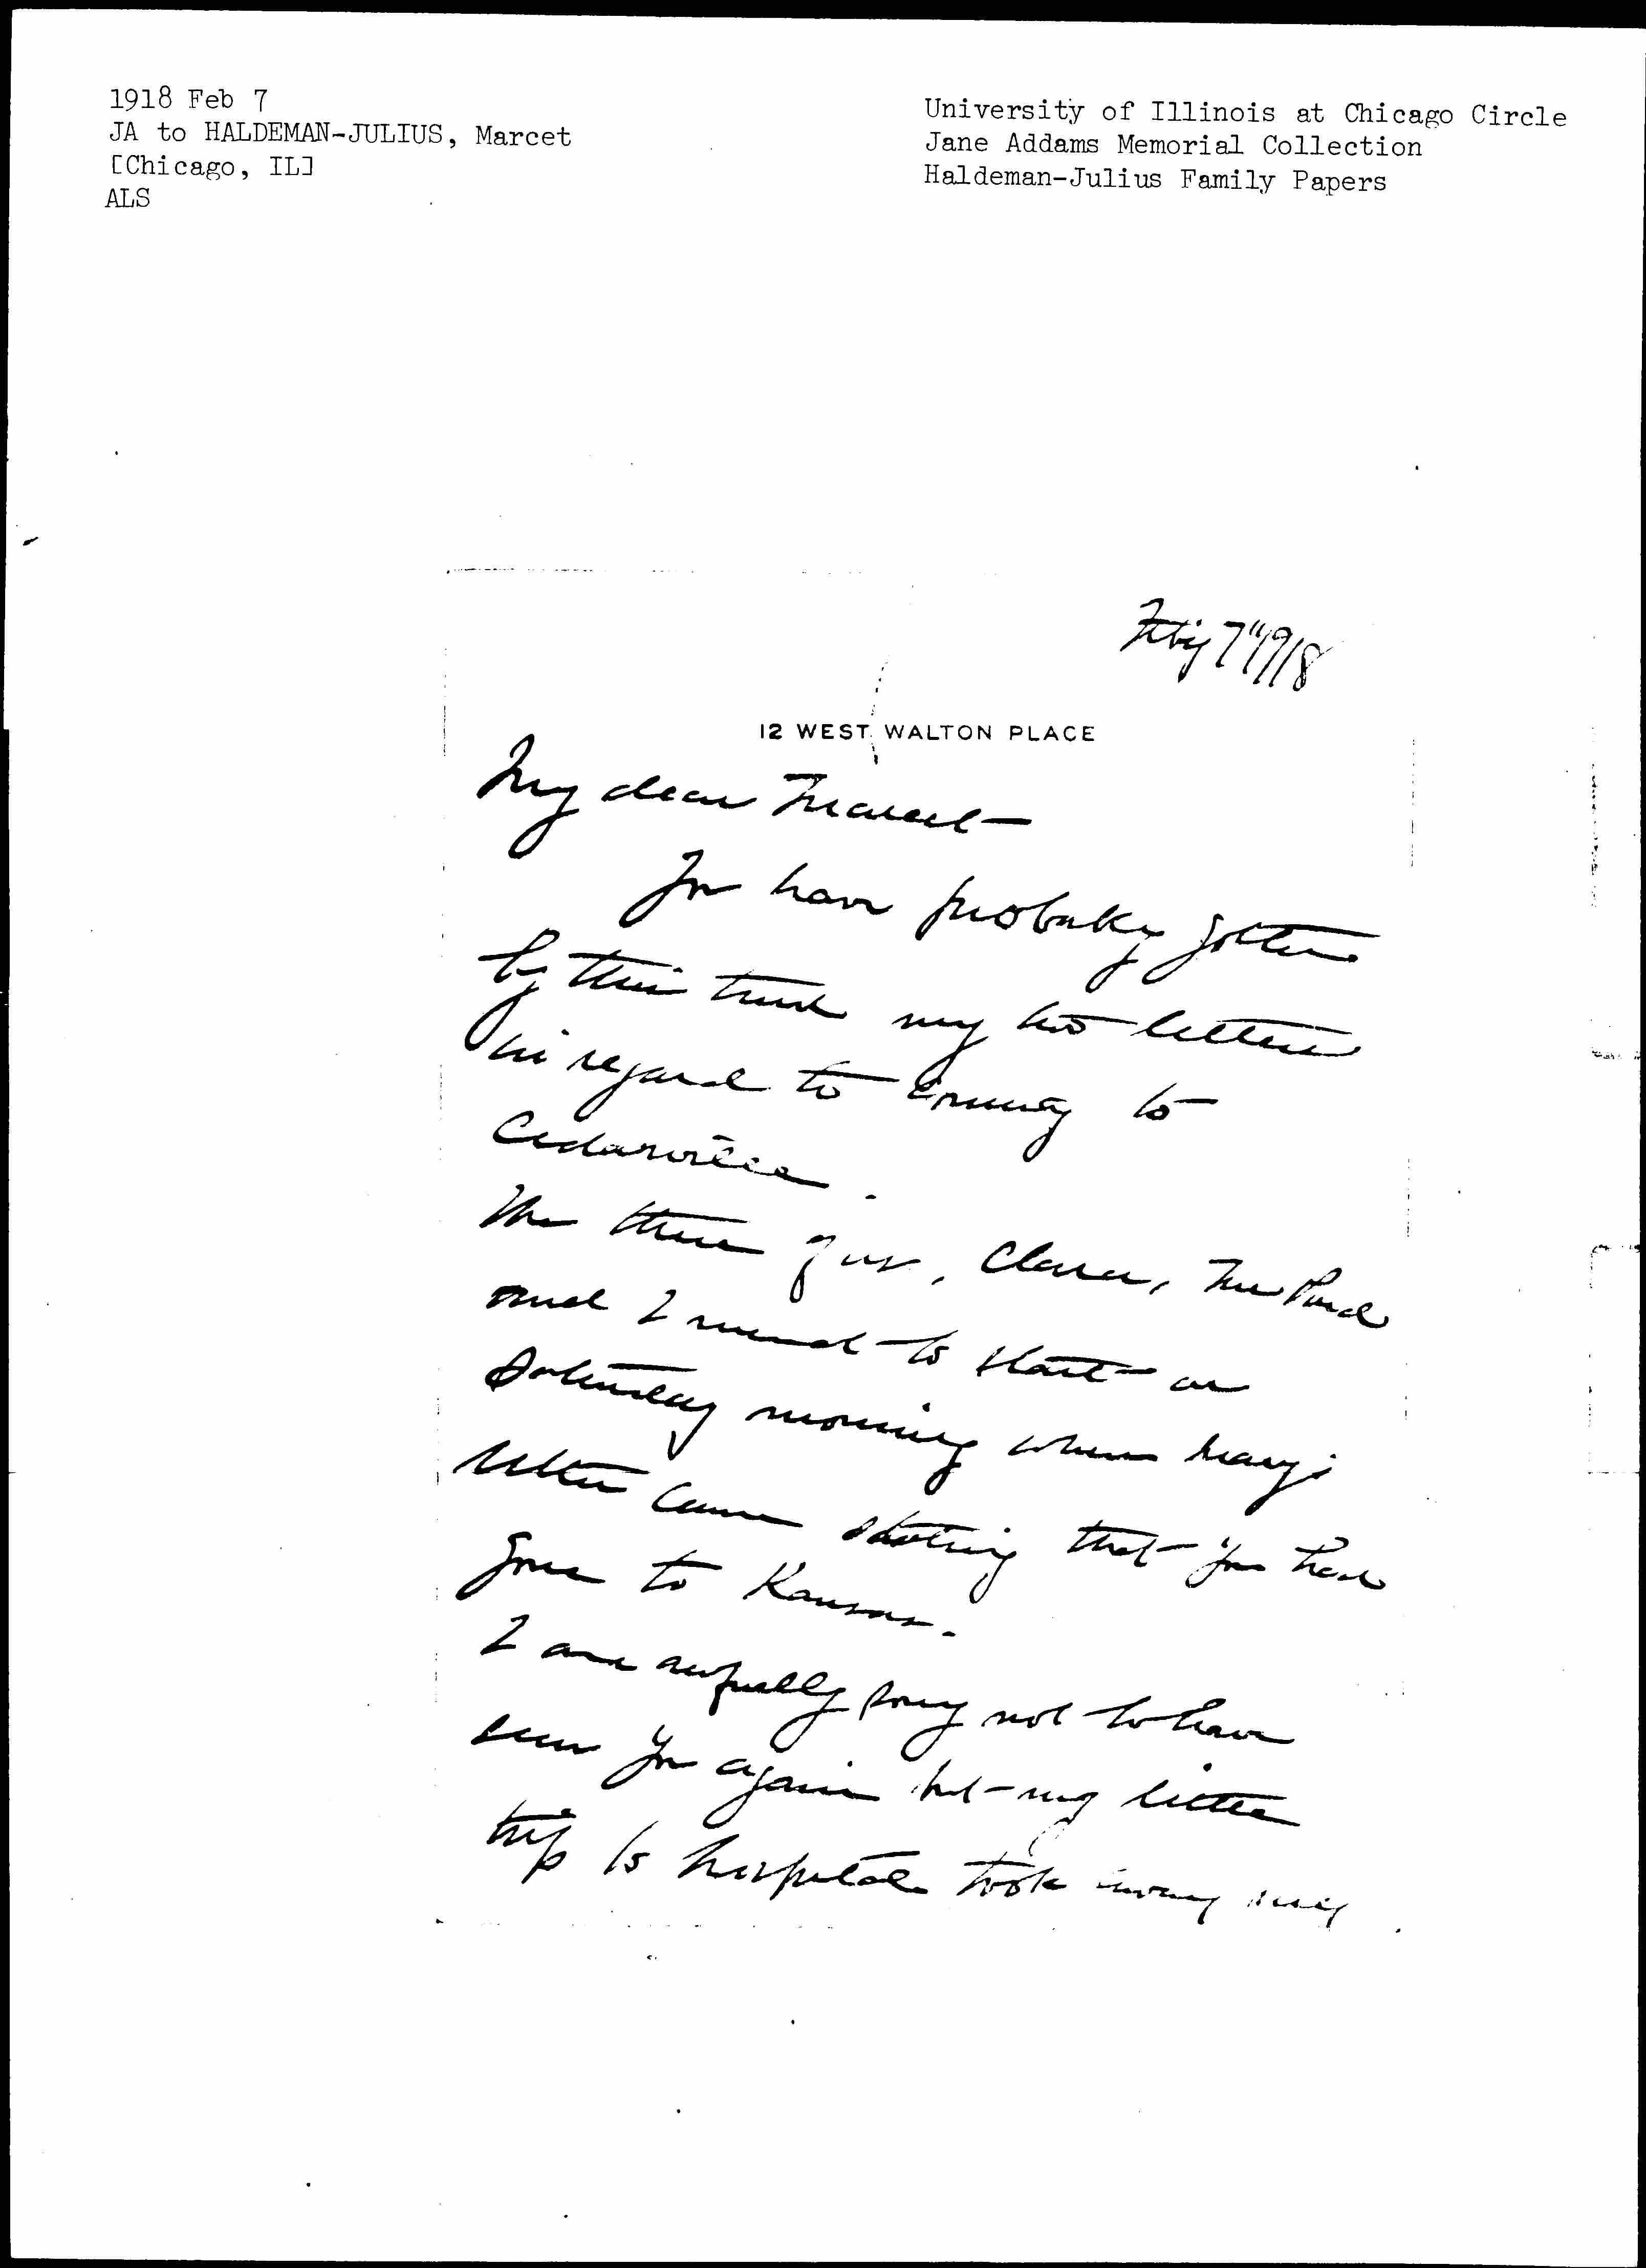 1918 Feb 7
JA to HALDEMAN-JULIUS, Marcet
[Chicago, IL]
ALS
University of Illinois at Chicago Circle
Jane Addams Memorial Collection
Haldeman-Julius Family Papers
Feby 7" 1918
12 WEST WALTON PLACE
My dear Marcet—
You have probably gotten
by this time my two letters
in regard to coming to
Cedarville.
The three of us, Clara,
and I want to start on
Saturday morning when Mary's
letter came stating that you had
gone to Kansas.
I am awfully sorry not to have
seen you again but my little
trip to hospital took away my